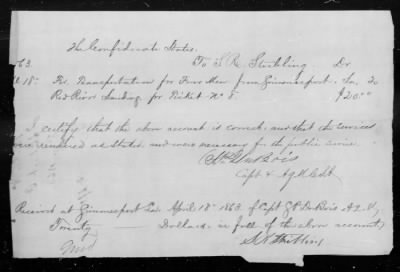 The Confederate States.
63. To S. R. Stribling Dr
18. For Transportation for Four Men from Simmesport, La, To
Red River Landing for Picket No 8. $20.00
I certify that the above account is correct, and that the services
were rendered as stated, and were necessary for the public service.
DuBois
Capt & AQM CSA
Received at Simmesport La. April 18th 1863 of Capt DuBois A.Q.M,
Twenty Dollars, in full of the above account,
S R Stribling